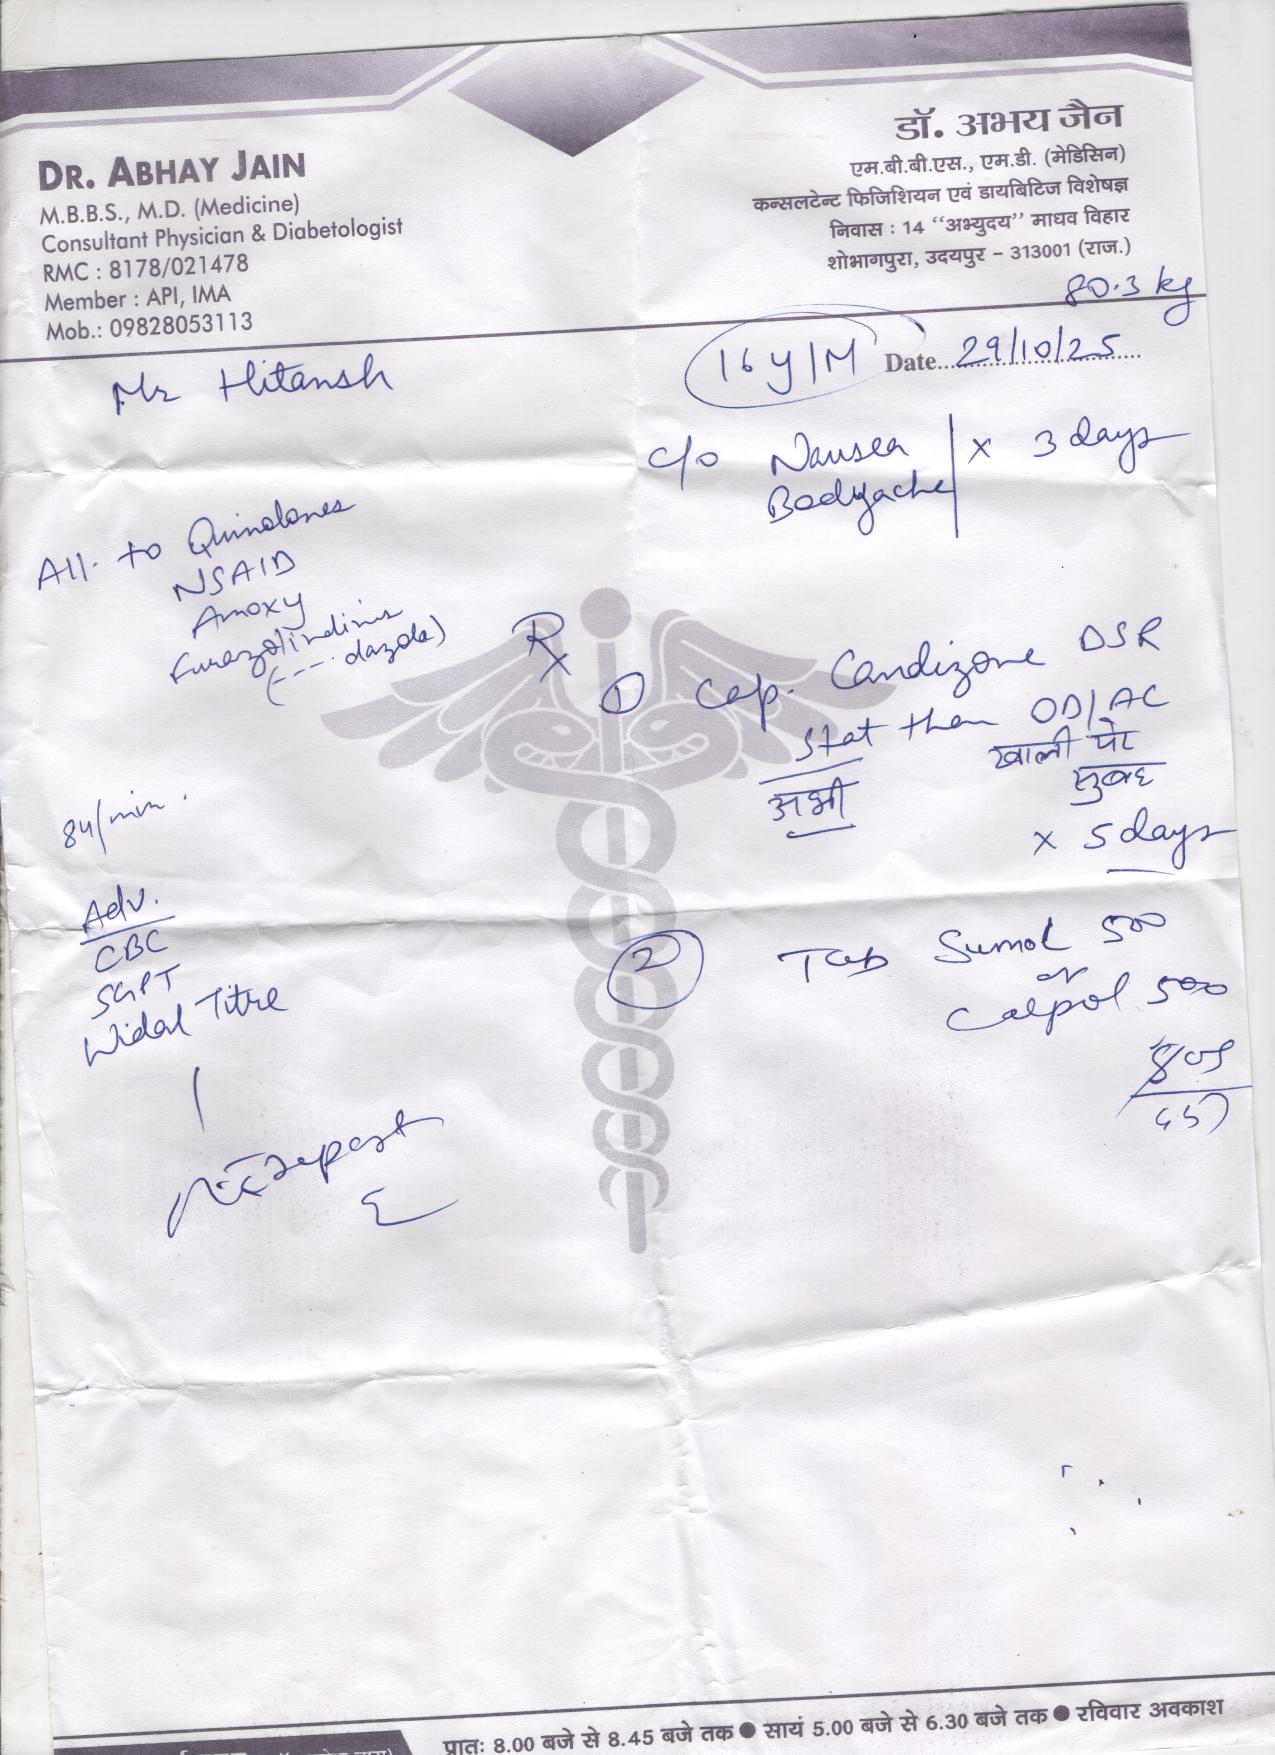 DR. ABHAY JAIN
M.B.B.S., M.D. (Medicine)
Consultant Physician & Diabetologist
RMC : 8178/021478
Member : API, IMA
Mob.: 09828053113
डॉ. अभय जैन
एम.बी.बी.एस., एम.डी. (मेडिसिन)
कन्सलटेन्ट फिजिशियन एवं डायबिटिज विशेषज्ञ
निवास : 14 “अभ्युदय” माधव विहार
शोभागपुरा, उदयपुर – 313001 (राज.)
80.3 kg
Mr Hitansh
16 y/M Date 29/10/25
c/o Nausea x 3 days
Bodyache
All. to Quinolones
NSAID
Amoxy
(--- dazole)
Rx
① Cap. Candizone DSR
stat then OD/AC
अभी
खाली पेट
सुबह
x 5 days
84/min.
Adv.
CBC
SGPT
Widal Titre
② Tab Sumol 500
or
Calpol 500
SOS
repeat
प्रातः 8.00 बजे से 8.45 बजे तक ● सायं 5.00 बजे से 6.30 बजे तक ● रविवार अवकाश